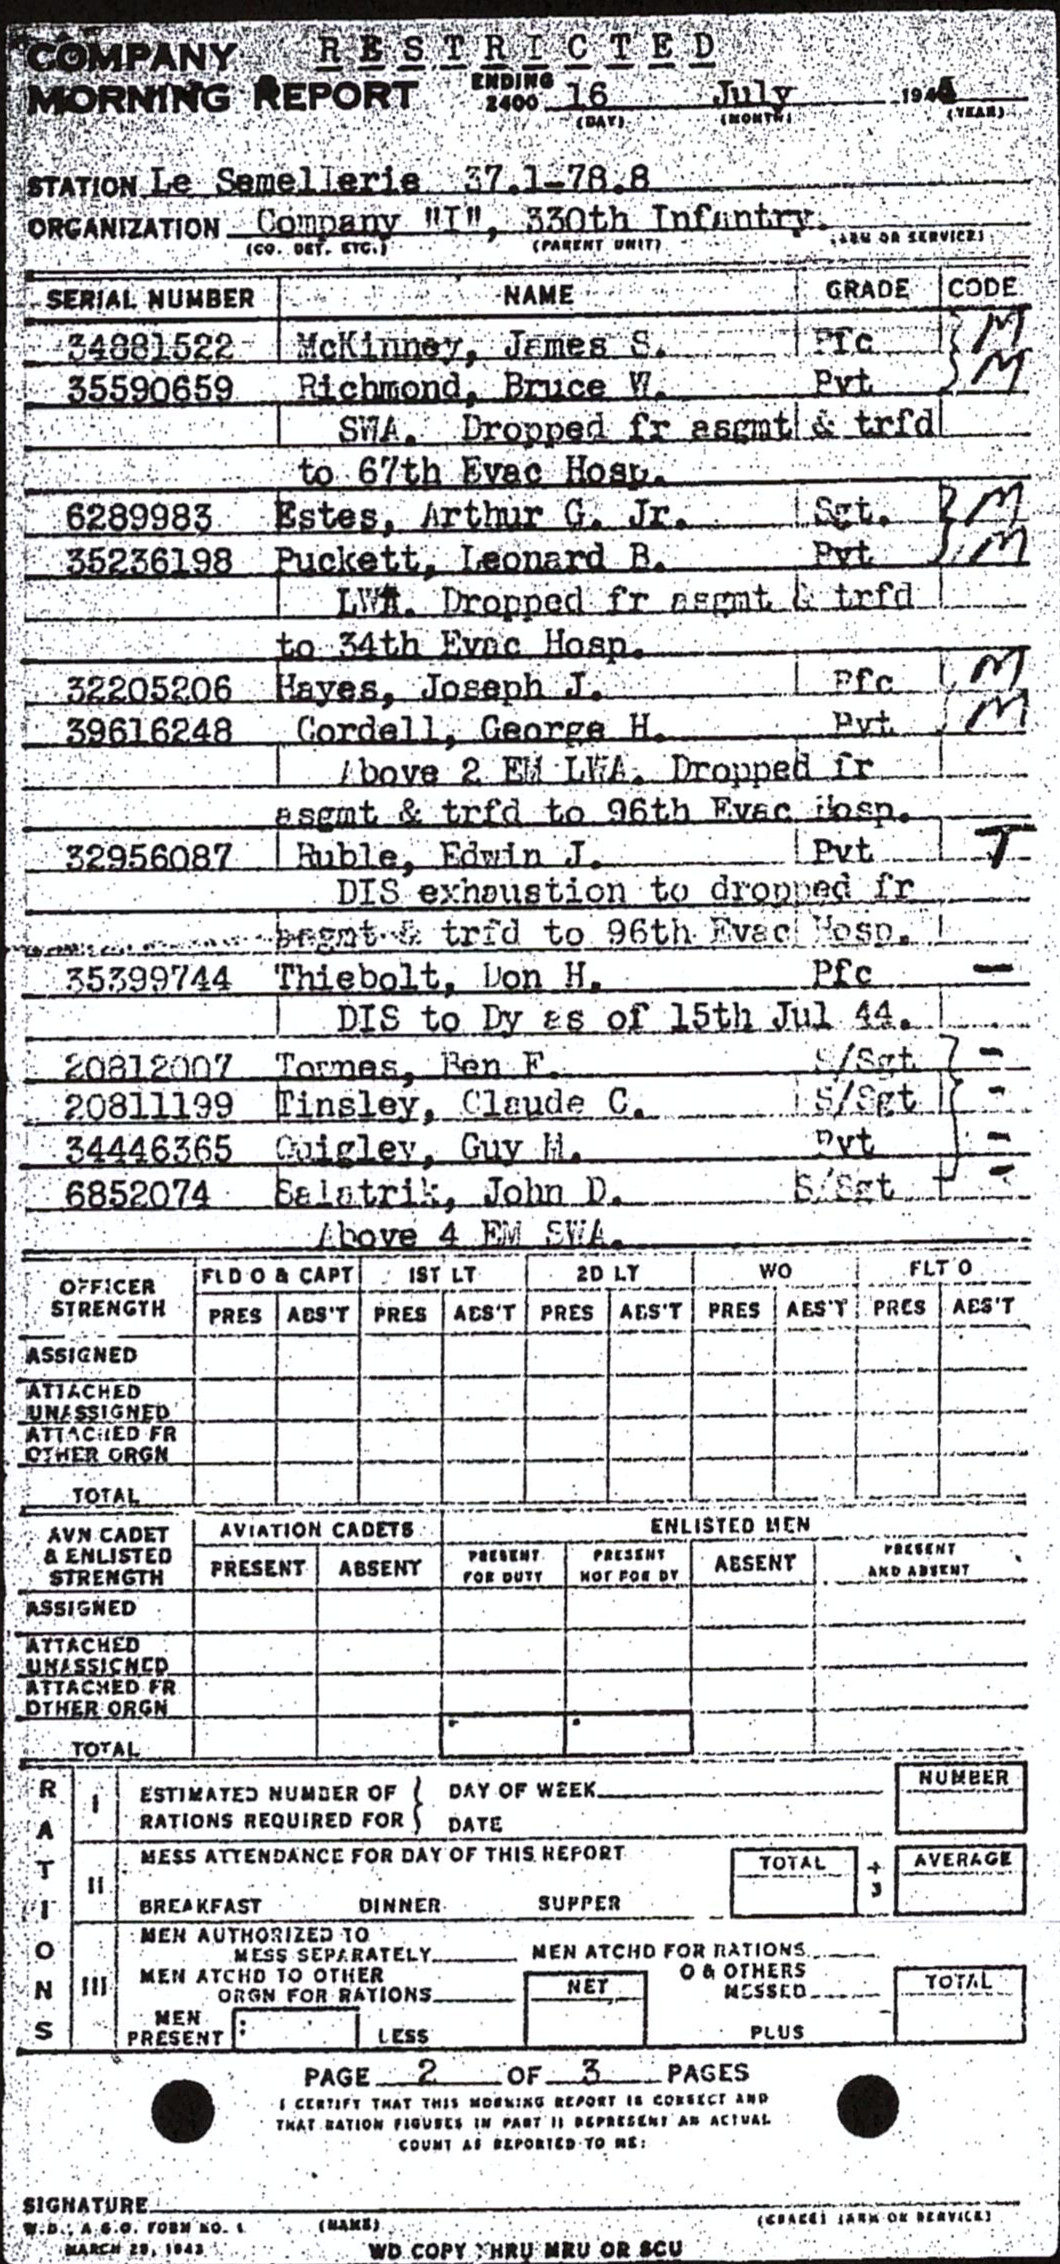 RESTRICTED
COMPANY
MORNING REPORT ENDING 2400 16 July 1944
(DAY) (MONTH) (YEAR)
STATION Le Semellerie 37.1-78.8
ORGANIZATION Company "I", 330th Infantry.
(CO. DET. ETC.) (PARENT UNIT) (ARM OR SERVICE)
SERIAL NUMBER NAME GRADE CODE
34881522 McKinney, James S. Pfc M
35590659 Richmond, Bruce W. Pvt M
SWA. Dropped fr asgmt & trfd
to 67th Evac Hosp.
6289983 Estes, Arthur G. Jr. Sgt. M
35236198 Puckett, Leonard B. Pvt M
LWA. Dropped fr asgmt & trfd
to 34th Evac Hosp.
32205206 Hayes, Joseph J. Pfc M
39616248 Cordell, George H. Pvt M
Above 2 EM LWA. Dropped fr
asgmt & trfd to 96th Evac Hosp.
32956087 Ruble, Edwin J. Pvt T
DIS exhaustion to dropped fr
asgmt & trfd to 96th Evac Hosp.
35399744 Thiebolt, Don H. Pfc —
DIS to Dy as of 15th Jul 44.
20812007 Tormes, Ben F. S/Sgt -
20811199 Tinsley, Claude C. S/Sgt -
34446365 Quigley, Guy M. Pvt -
6852074 Salatrik, John D. S/Sgt -
Above 4 EM SWA.
OFFICER STRENGTH FLD O & CAPT 1ST LT 2D LT WO FLT O
PRES ABS'T PRES ABS'T PRES ABS'T PRES ABS'T PRES ABS'T
ASSIGNED
ATTACHED UNASSIGNED
ATTACHED FR OTHER ORGN
TOTAL
AVN CADET & ENLISTED STRENGTH AVIATION CADETS ENLISTED MEN
PRESENT ABSENT PRESENT FOR DUTY PRESENT NOT FOR DY ABSENT PRESENT AND ABSENT
ASSIGNED
ATTACHED UNASSIGNED
ATTACHED FR OTHER ORGN
TOTAL
RATIONS
I ESTIMATED NUMBER OF RATIONS REQUIRED FOR DAY OF WEEK NUMBER
DATE
II MESS ATTENDANCE FOR DAY OF THIS REPORT TOTAL ÷ 3 AVERAGE
BREAKFAST DINNER SUPPER
III MEN AUTHORIZED TO MESS SEPARATELY MEN ATCHD FOR RATIONS
MEN ATCHD TO OTHER ORGN FOR RATIONS NET O & OTHERS MESSED TOTAL
MEN PRESENT LESS PLUS
PAGE 2 OF 3 PAGES
I CERTIFY THAT THIS MORNING REPORT IS CORRECT AND
THAT RATION FIGURES IN PART II REPRESENT AN ACTUAL
COUNT AS REPORTED TO ME:
SIGNATURE
(NAME) (GRADE) (ARM OR SERVICE)
W.D., A.G.O. FORM NO. 1
MARCH 29, 1943 WD COPY THRU MRU OR SCU